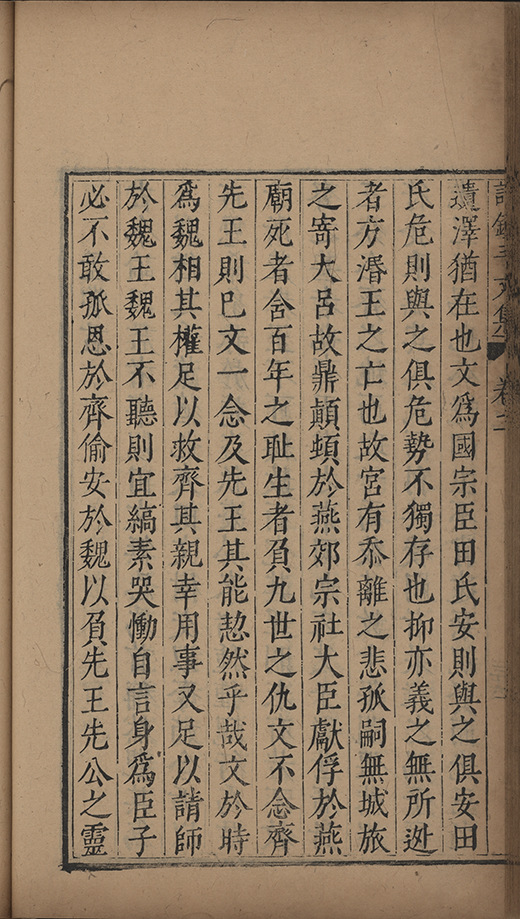 卷二
遺澤猶在也文爲國宗臣田氏安則與之俱安田
氏危則與之俱危勢不獨存也抑亦義之無所逃
者方湣王之亡也故宮有黍離之悲孤嗣無城旅
之寄大呂故鼎顛頓於燕郊宗社大臣獻俘於燕
廟死者含百年之恥生者負九世之仇文不念齊
先王則已文一念及先王其能恝然乎哉文於時
爲魏相其權足以救齊其親幸用事又足以請師
於魏王魏王不聽則宜縞素哭慟自言身爲臣子
必不敢孤恩於齊偷安於魏以負先王先公之靈